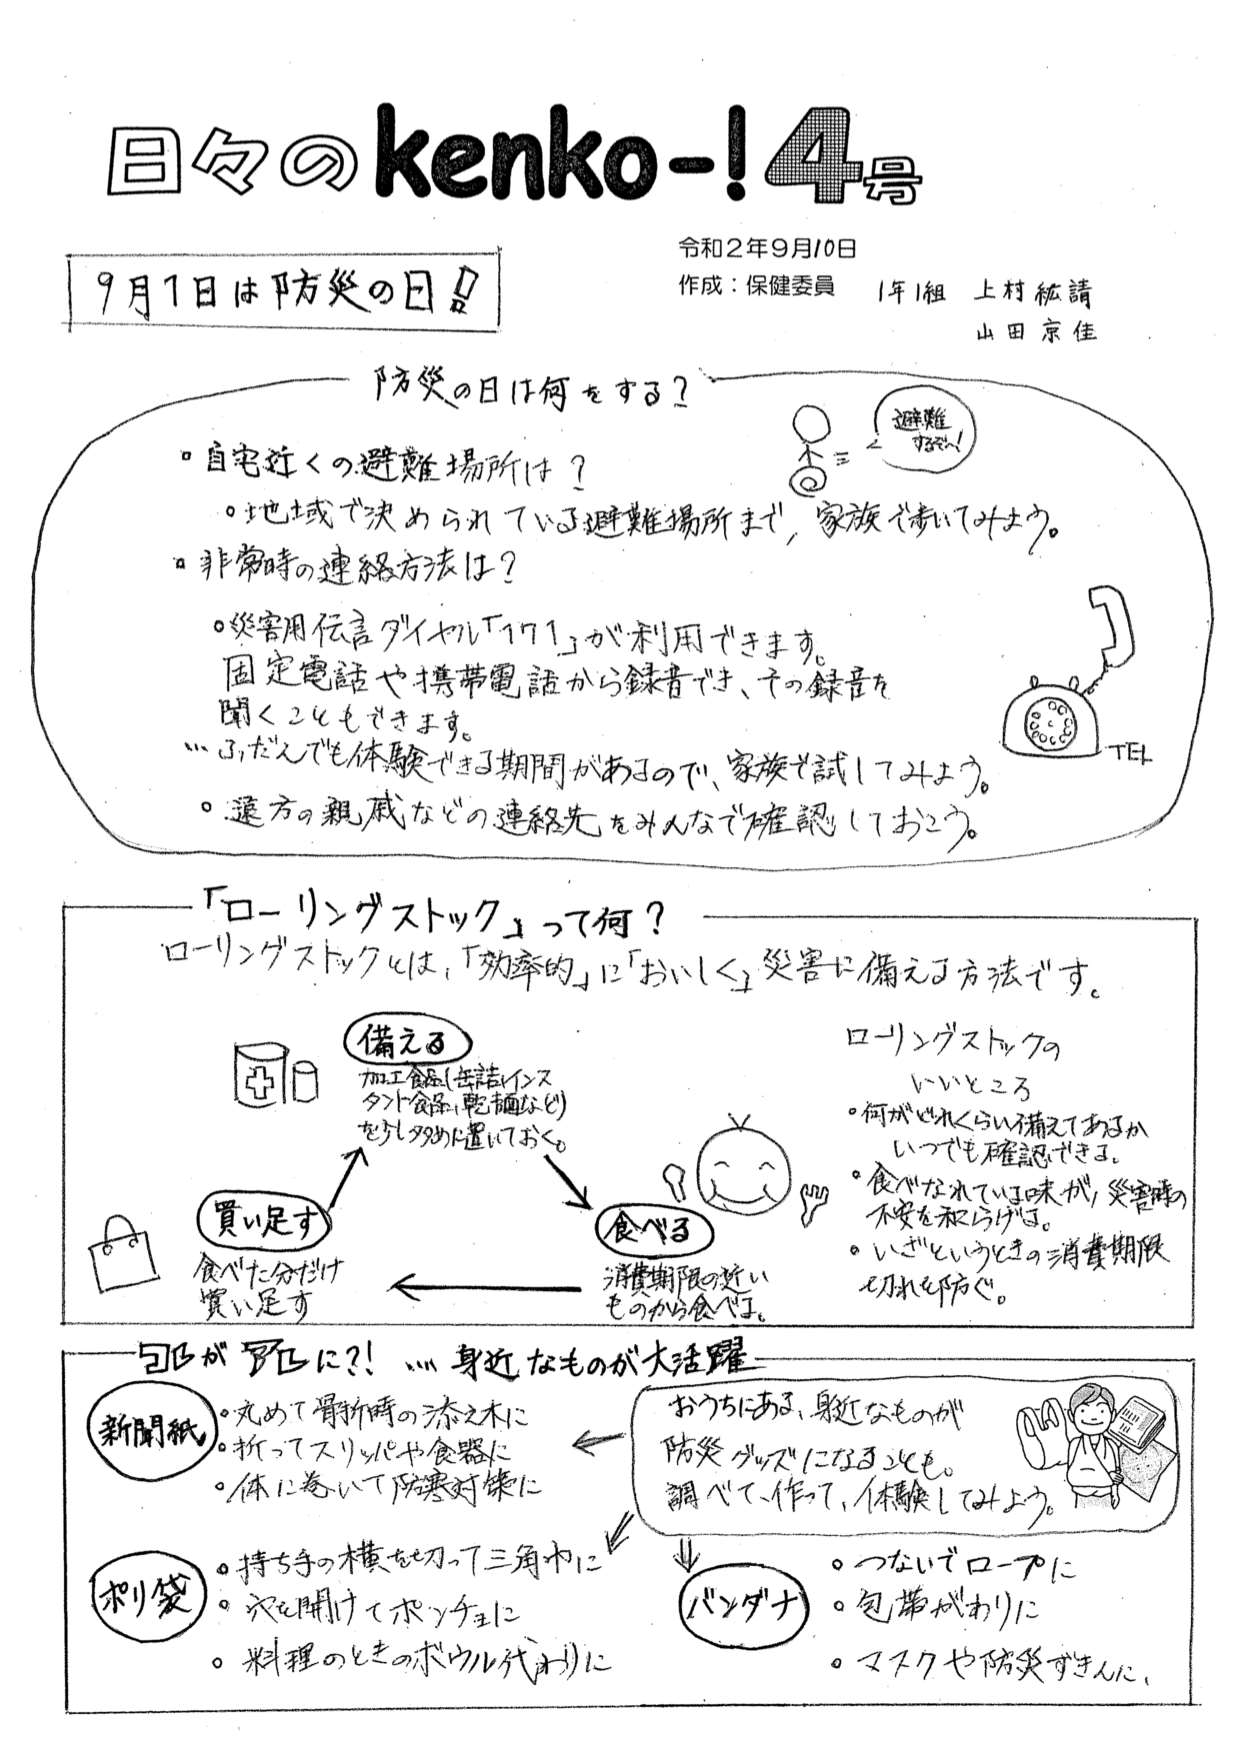 日々のkenko-!4号
令和2年9月10日
作成：保健委員 1年1組 上村紘請
山田京佳
9月1日は防災の日!!
防災の日は何をする？
避難
するぞ〜!
・自宅近くの避難場所は？
・地域で決められている避難場所まで、家族で歩いてみよう。
・非常時の連絡方法は？
・災害用伝言ダイヤル「171」が利用できます。
固定電話や携帯電話から録音でき、その録音を
聞くこともできます。
…ふだんでも体験できる期間があるので、家族で試してみよう。
・遠方の親戚などの連絡先をみんなで確認しておこう。
TEL
「ローリングストック」って何？
ローリングストックとは、「効率的」に「おいしく」災害に備える方法です。
備える
加工食品(缶詰、インス
タント食品、乾麺など)
を少し多めに置いておく。
食べる
消費期限の近い
ものから食べる。
買い足す
食べた分だけ
買い足す
ローリングストックの
いいところ
・何がどれくらい備えてあるか
いつでも確認できる。
・食べなれている味が、災害時の
不安を和らげる。
・いざというときの消費期限
切れを防ぐ。
コレがアレに?! … 身近なものが大活躍
おうちにある、身近なものが
防災グッズになることも。
調べて、作って、体験してみよう。
新聞紙
・丸めて骨折時の添え木に
・折ってスリッパや食器に
・体に巻いて防寒対策に
ポリ袋
・持ち手の横を切って三角巾に
・穴を開けてポンチョに
・料理のときのボウル代わりに
バンダナ
・つないでロープに
・包帯がわりに
・マスクや防災ずきんに、